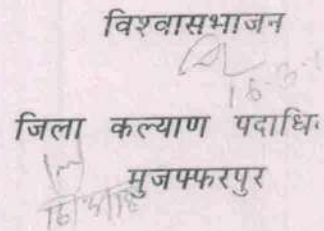 विश्वासभाजन
16.3.
जिला कल्याण पदाधि.
मुजफ्फरपुर